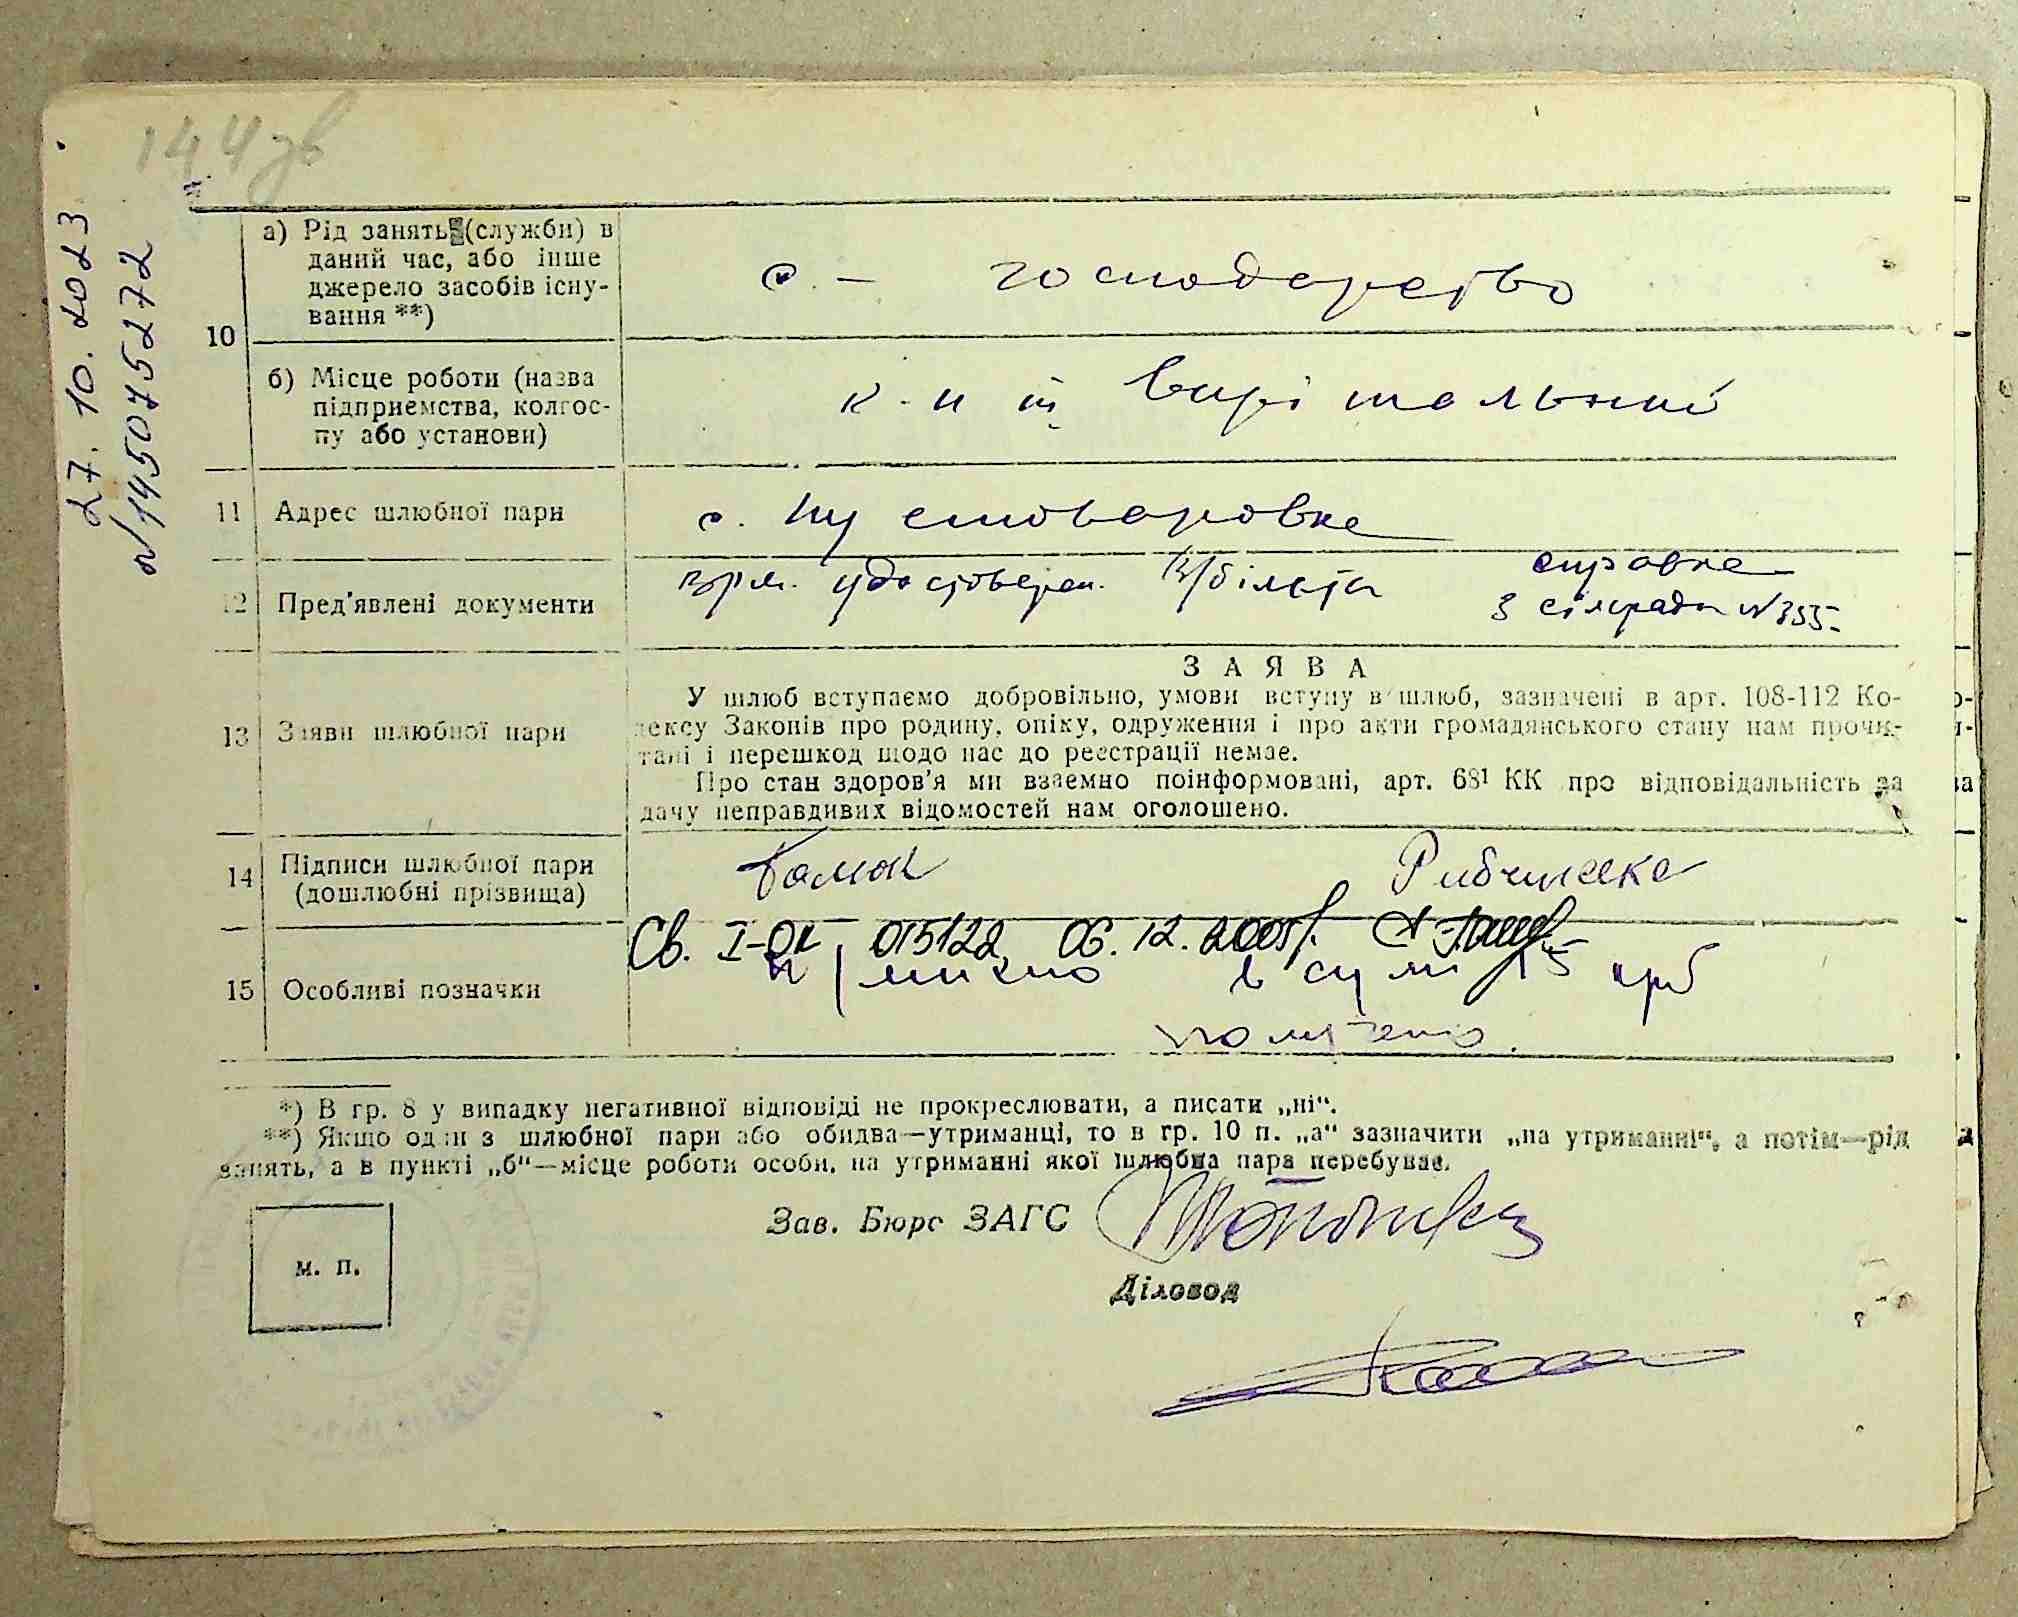 144 зв
27. 10. 2023
N 14507 5272
10
а) Рід занять (служби) в
даний час, або інше
джерело засобів існу-
вання **)
с. – господарство
б) Місце роботи (назва
підприємства, колгос-
пу або установи)
11
Адрес шлюбної пари
с. Пустоваровка
12
Пред'явлені документи
врм. удостоверен. В/білета
справка
з сільради N 355-
13
Заяви шлюбної пари
ЗАЯВА
У шлюб вступаємо добровільно, умови вступу в шлюб, зазначені в арт. 108-112 Ко-
дексу Законів про родину, опіку, одруження і про акти громадянського стану нам прочи-
тані і перешкод щодо нас до реєстрації немає.
Про стан здоров'я ми взаємно поінформовані, арт. 68¹ КК про відповідальність за
дачу неправдивих відомостей нам оголошено.
14
Підписи шлюбної пари
(дошлюбні прізвища)
15
Особливі позначки
Св. I-ОК 015122 06. 12. 2005р.
в сумі 15 крб
*) В гр. 8 у випадку негативної відповіді не прокреслювати, а писати „ні“.
**) Якщо один з шлюбної пари або обидва—утриманці, то в гр. 10 п. „а“ зазначити „на утриманні“, а потім—рід
занять, а в пункті „б“—місце роботи особи, на утриманні якої шлюбна пара перебуває.
Зав. Бюро ЗАГС
м. п.
Діловод